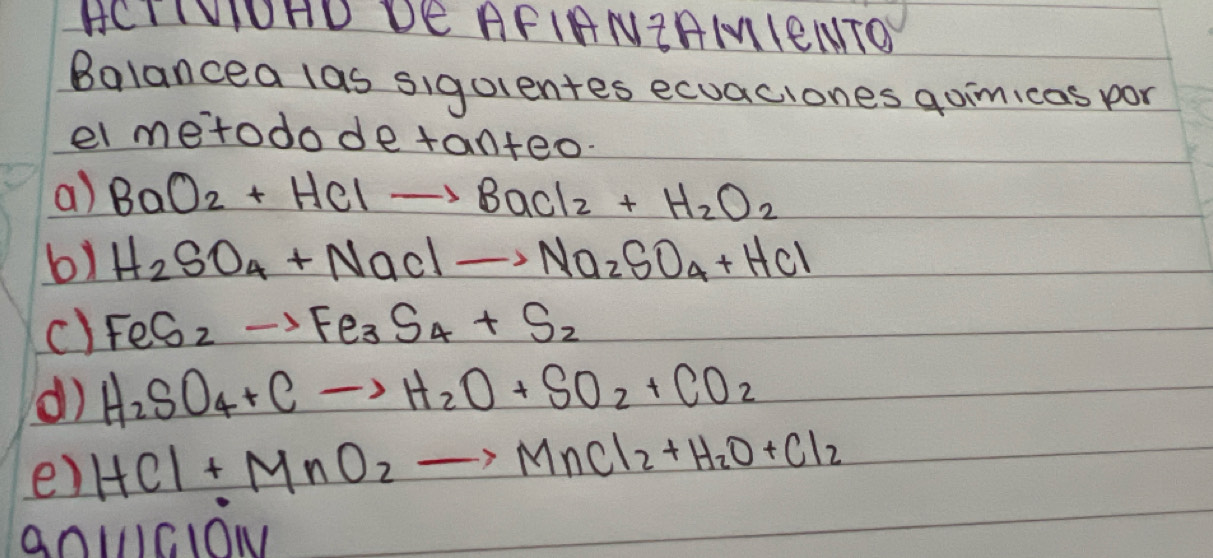 ACTIVIDAD DE AFIANZAMIENTO
Balancea las siguientes ecuaciones químicas por
el metodo de tanteo.
a) BaO₂ + HCl → BaCl₂ + H₂O₂
b) H₂SO₄ + NaCl → Na₂SO₄ + HCl
c) FeS₂ → Fe₃S₄ + S₂
d) H₂SO₄ + C → H₂O + SO₂ + CO₂
e) HCl + MnO₂ → MnCl₂ + H₂O + Cl₂
SOLUCIÓN